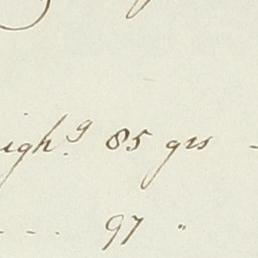 eigh.g 85 grs -
--- 97 "